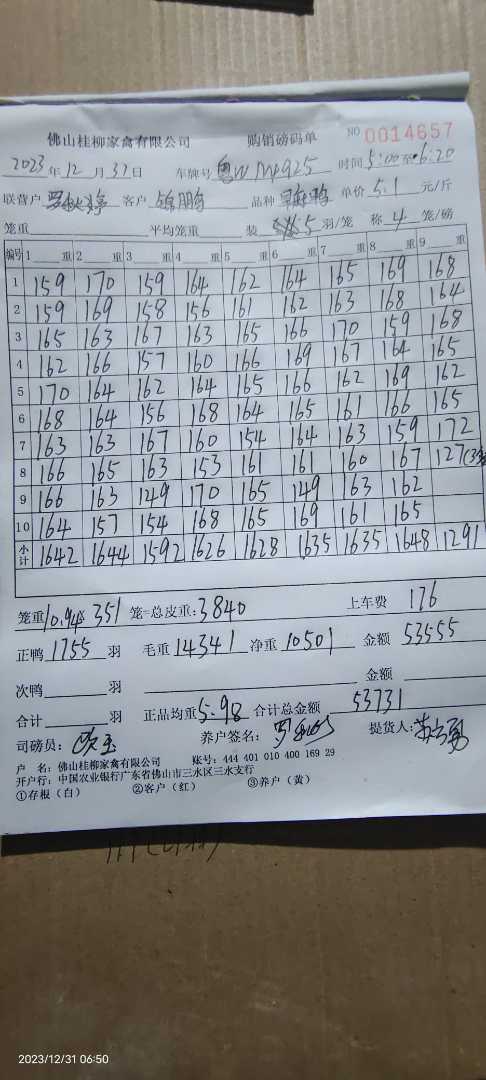 佛山桂柳家禽有限公司 购销磅码单 NO 0014657
2023年12月31日 车牌号 粤W M4925 时间 5:00至6:20
联营户 客户 锦鹏 品种 单价 5.1 元/斤
笼重 平均笼重 装 5 羽/笼 称 4 笼/磅
编号 1 重 2 重 3 重 4 重 5 重 6 重 7 重 8 重 9 重
1 159 170 159 164 162 164 165 169 168
2 159 169 158 156 161 162 163 168 164
3 165 163 167 163 165 166 170 159 168
4 162 166 157 160 166 169 167 164 165
5 170 164 162 164 165 166 162 169 162
6 168 164 156 168 164 165 161 166 165
7 163 163 167 160 154 164 163 159 172
8 166 165 163 153 161 161 160 167 127(3
9 166 163 149 170 165 149 163 162
10 164 157 154 168 165 169 161 165
小计 1642 1644 1592 1626 1628 1635 1635 1648 1291
笼重10.94x 351 笼=总皮重:3840 上车费 176
正鸭 1755 羽 毛重 14341 净重 10501 金额 53555
次鸭 羽 金额
合计 羽 正品均重 5.98 合计总金额 53731
司磅员: 养户签名: 提货人:
户 名: 佛山桂柳家禽有限公司 账号: 444 401 010 400 169 29
开户行: 中国农业银行广东省佛山市三水区三水支行
①存根(白) ②客户(红) ③养户(黄)
2023/12/31 06:50